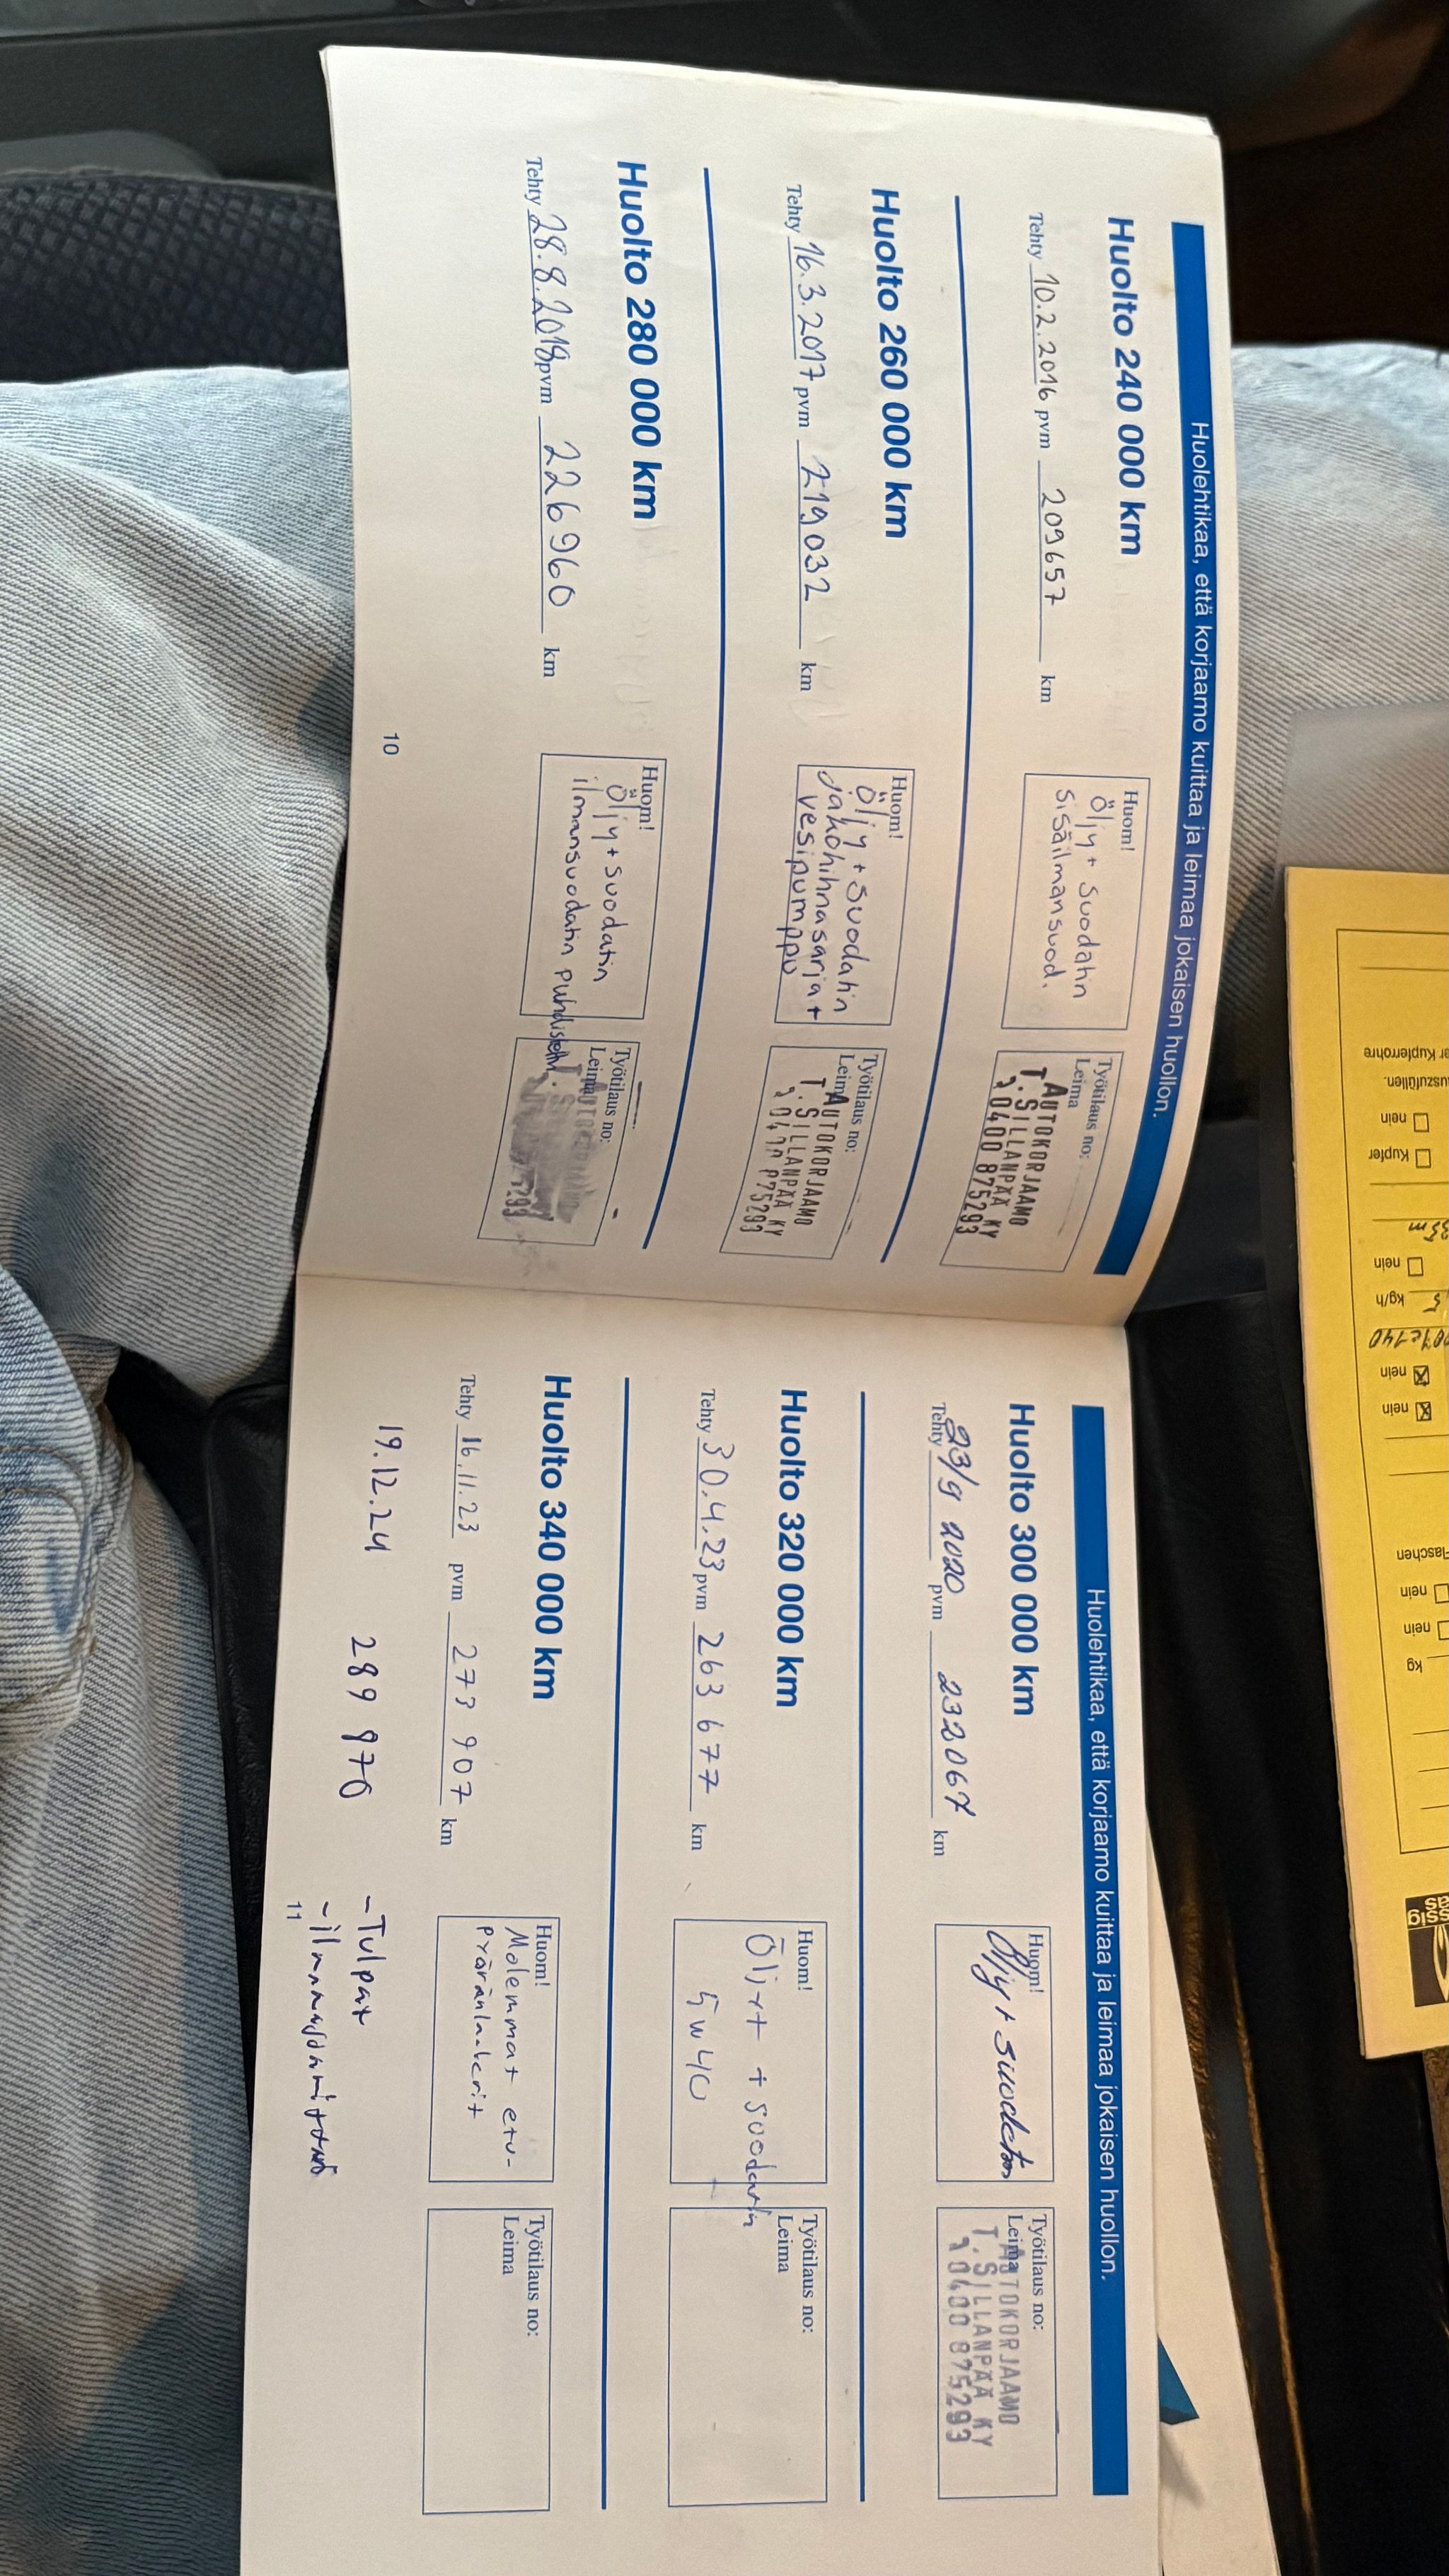 Huolehtikaa, että korjaamo kuittaa ja leimaa jokaisen huollon.
Huolto 240 000 km
Tehty 10.2.2016 pvm 209657 km
Huom!
Öljy + suodatin
sisäilmansuod.
Työtilaus no:
Leima
AUTOKORJAAMO
T. SILLANPÄÄ KY
0400 875293
Huolto 260 000 km
Tehty 16.3.2017 pvm 219032 km
Huom!
Öljy + suodatin
Jakohihnasarja +
vesipumppu
Työtilaus no:
Leima
AUTOKORJAAMO
T. SILLANPÄÄ KY
0400 875293
Huolto 280 000 km
Tehty 28.8.2018 pvm 226960 km
Huom!
Öljy + suodatin
ilmansuodatin puhdistettu.
Työtilaus no:
Leima
10
Huolehtikaa, että korjaamo kuittaa ja leimaa jokaisen huollon.
Huolto 300 000 km
Tehty 23/9 2020 pvm 232067 km
Huom!
Öljy + suodatin
Työtilaus no:
Leima
AUTOKORJAAMO
T. SILLANPÄÄ KY
0400 875293
Huolto 320 000 km
Tehty 30.4.23 pvm 263 677 km
Huom!
Öljyt + suodatin
5w40
Työtilaus no:
Leima
Huolto 340 000 km
Tehty 16.11.23 pvm 273 907 km
Huom!
Molemmat etu-
pyöränlaakerit
Työtilaus no:
Leima
19.12.24 289 970
-Tulpat
11
er Kupferrohre
uszufüllen.
nein
Kupfer
nein
kg/h
nein
nein
Flaschen
nein
nein
kg